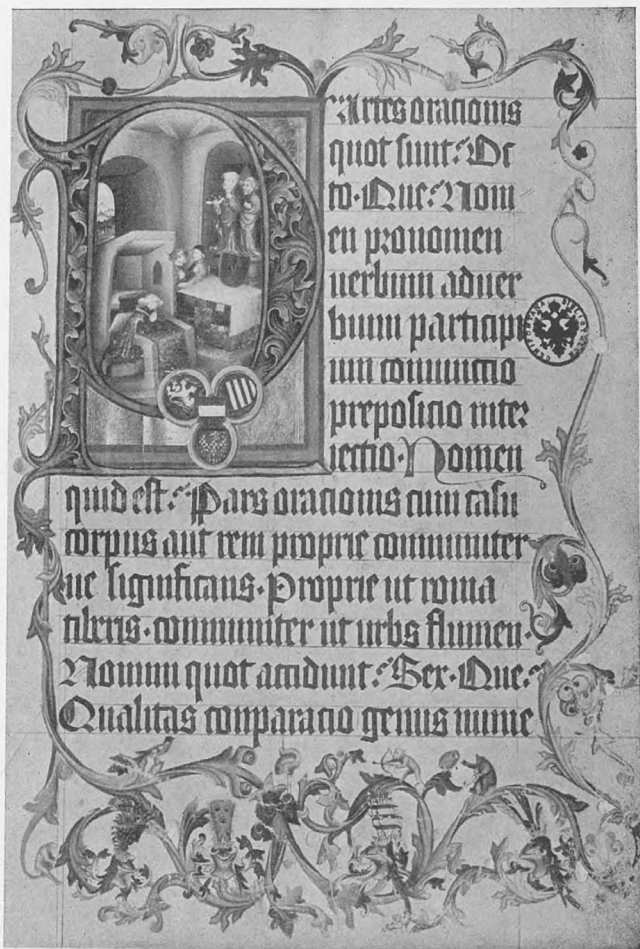 Partes oracionis
quot sunt? Oc
to. Que? Nom
en pronomen
uerbum aduer
bium particip
ium coniunctio
preposicio inter
iectio. Nomen
quid est? Pars oracionis cum casu
corpus aut rem proprie communiter
ue significans. Proprie ut roma
tiberis. communiter ut urbs flumen.
Nomini quot accidunt? Sex. Que?
Qualitas conparacio genus nume